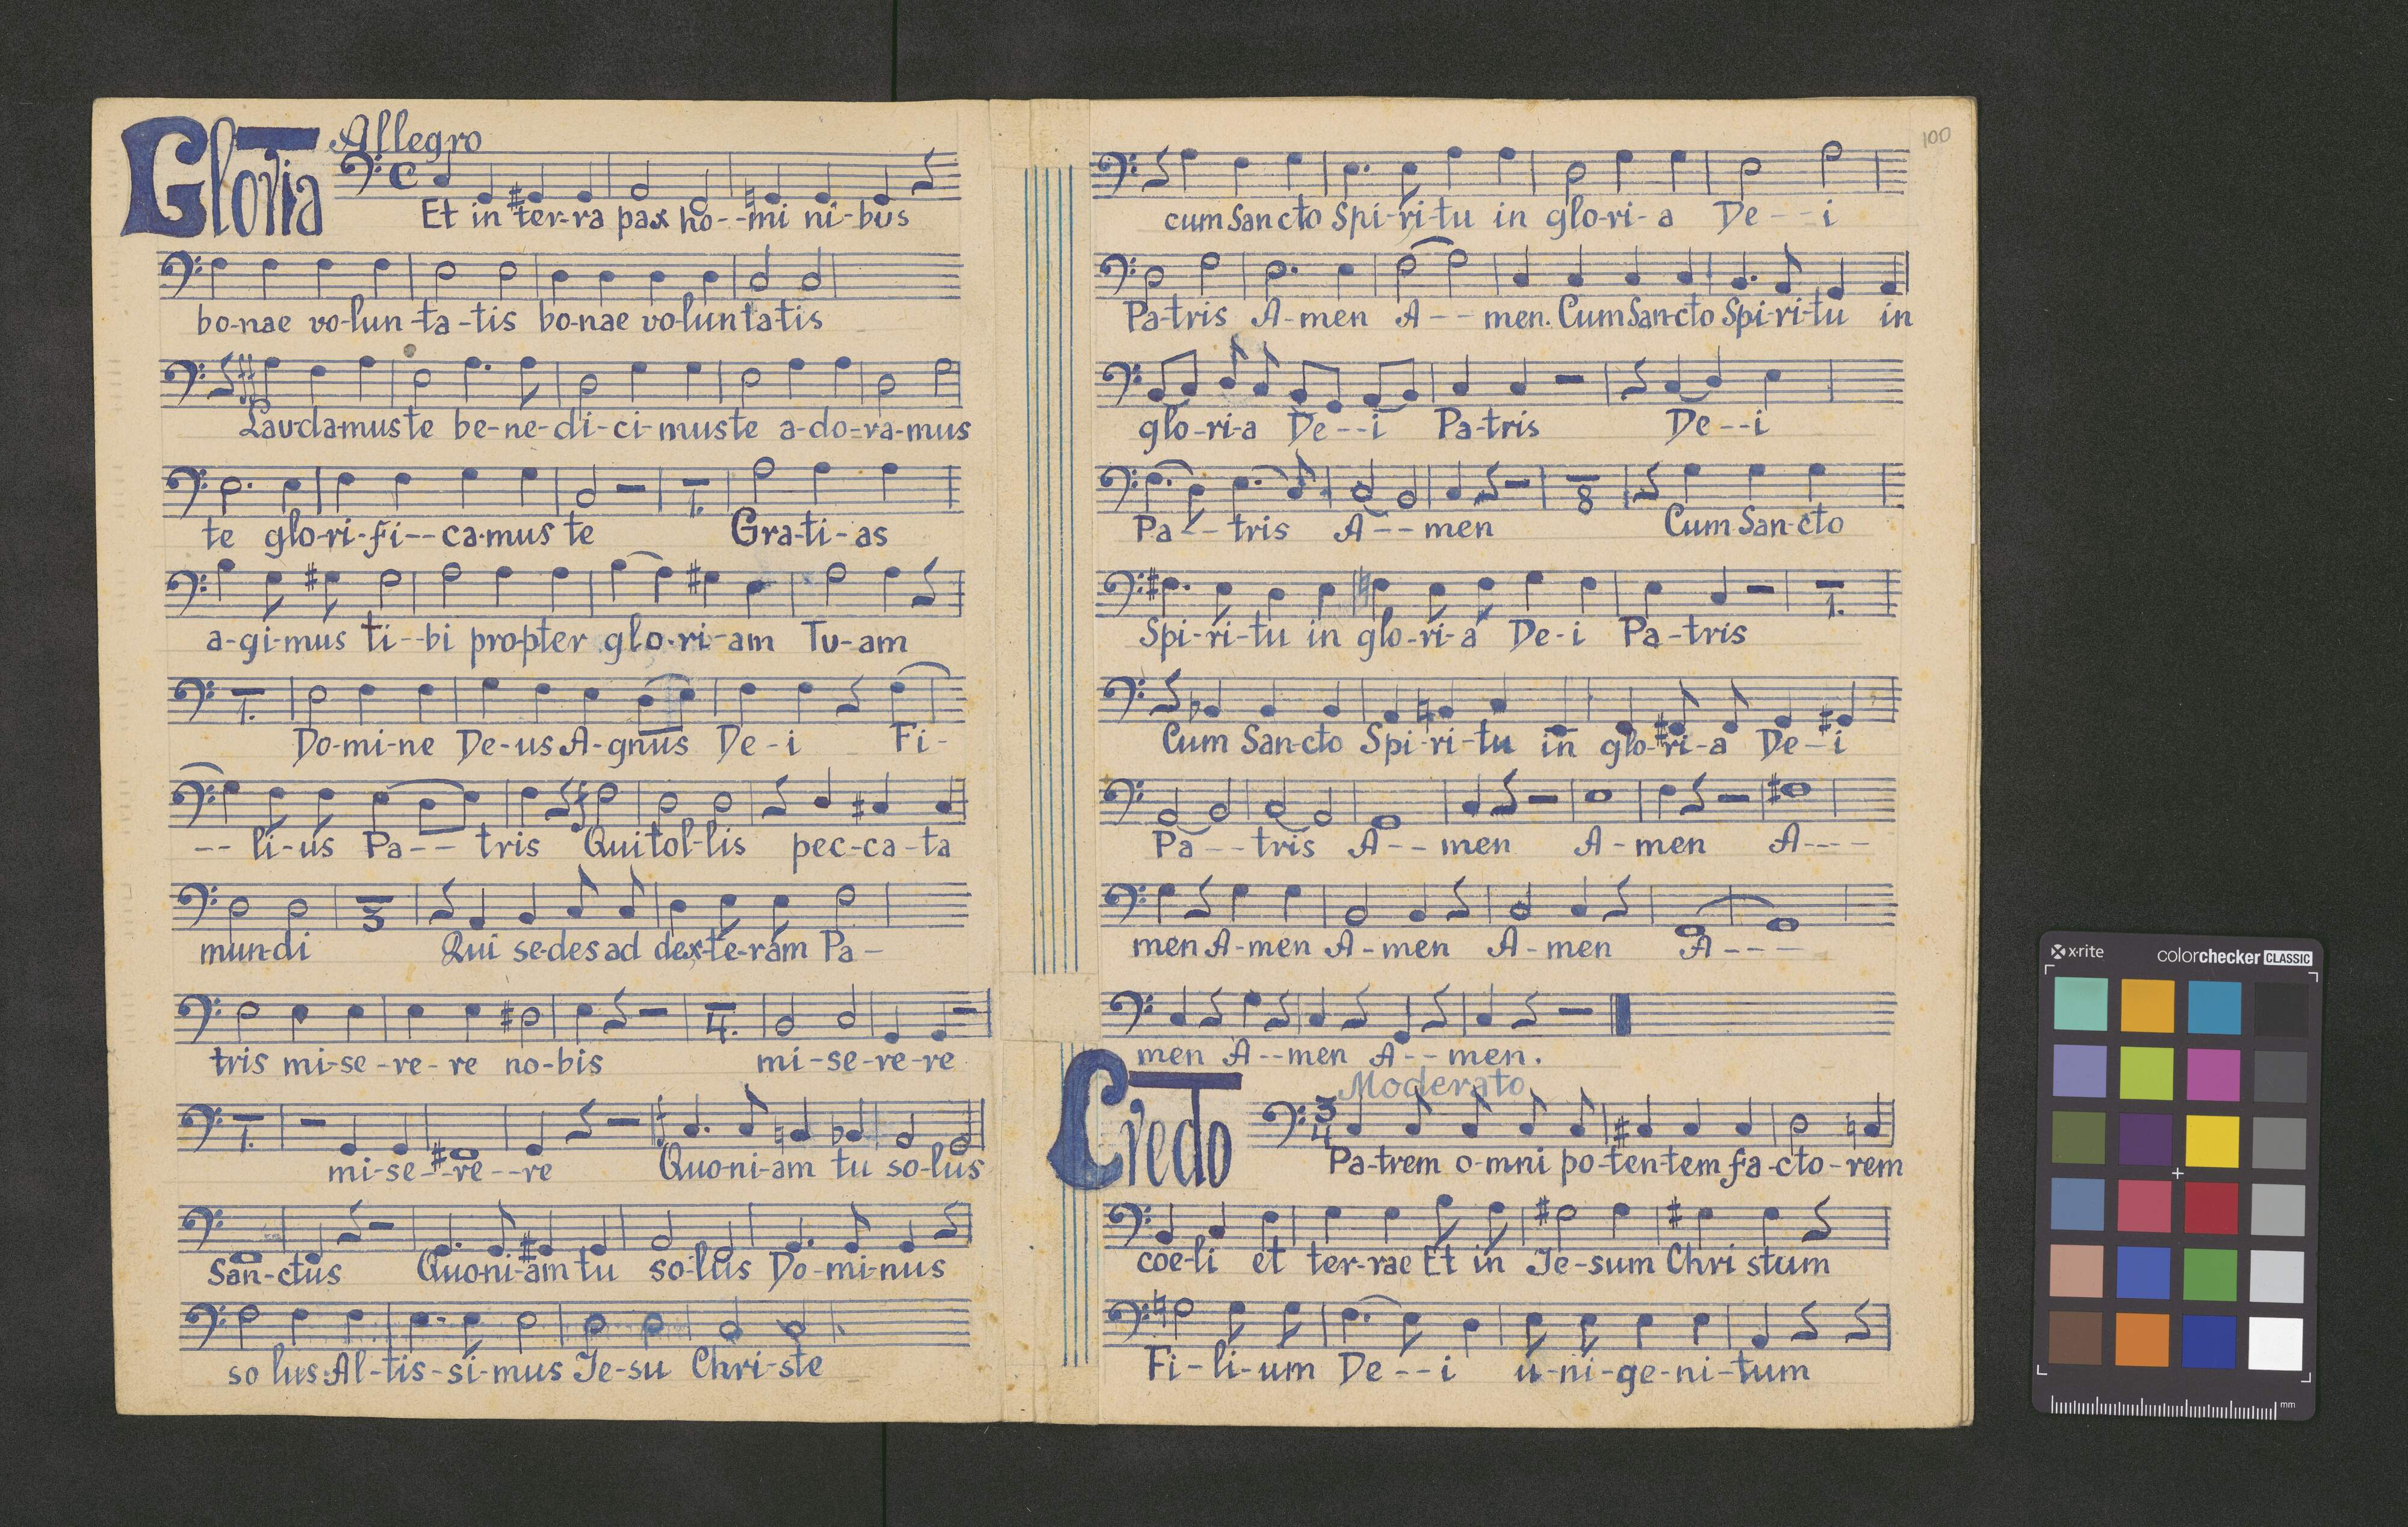 Gloria
Allegro
Et in ter-ra pax ho--mi ni-bus
bo-nae vo-lun-ta-tis bo-nae vo-luntatis
Laudamus te be-ne-di-ci-muste a-do-ra-mus
te glo-ri-fi--ca-mus te Gra-ti-as
1.
a-gi-mus ti--bi propter glo-ri-am Tu-am
1.
Do-mi-ne De-us A-gnus De-i Fi-
-- li-us Pa-- tris Qui tol-lis pec-ca-ta
3
mun-di Qui se-des ad dex-te-ram Pa-
4.
tris mi-se-re-re no-bis mi-se-re-re
1.
mi-se--re--re Quo-ni-am tu so-lus
San-ctus Quo-ni-am tu so-lus Do-mi-nus
so lus Al-tis-si-mus Je-su Chri-ste
100
cum San cto Spi-ri-tu in glo-ri-a De--i
Pa-tris A-men A--men. Cum San-cto Spi-ri-tu in
glo-ri-a De--i Pa-tris De--i
8
Pa-- tris A--men Cum San-cto
1.
Spi-ri-tu in glo-ri-a De-i Pa-tris
Cum San-cto Spi-ri-tu in glo-ri-a De-i
Pa--tris A--men A-men A----
men A-men A-men A-men A---
men A--men A--men.
Credo
Moderato
3
4
Pa-trem o-mni po-ten-tem fa-cto-rem
coe-li et ter-rae Et in Je-sum Chri stum
Fi-li-um De--i u-ni-ge-ni-tum
x-rite colorchecker CLASSIC
mm